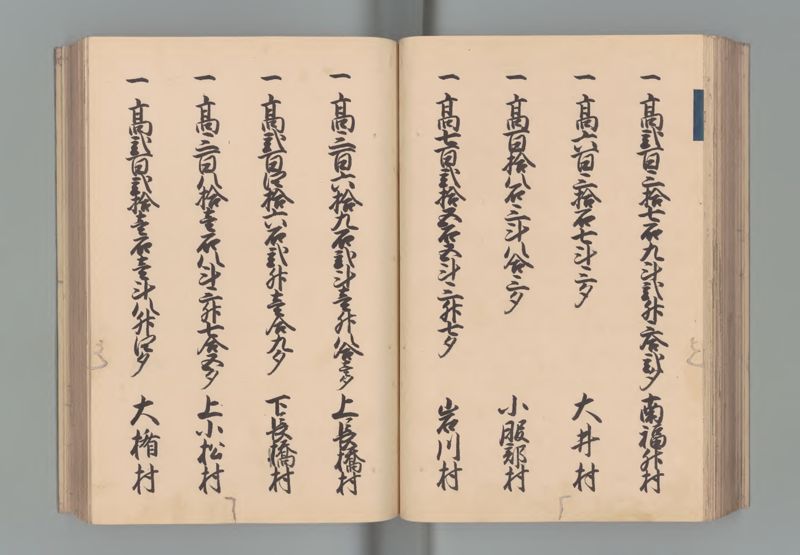 一 高弐百三拾七石九斗弐升三合弐夕 南福升村
一 高六百三拾石七斗三夕 大井村
一 高百拾八石三斗八合三夕 小服部村
一 高七百弐拾五石五斗三升七夕 岩川村
一 高三百六拾九石弐斗壱升八合壱夕 上長橋村
一 高弐百四拾六石弐升壱合九夕 下長橋村
一 高三百八拾壱石八斗三升七合五夕 上小松村
一 高弐百弐拾壱石壱斗八升四夕 大楯村